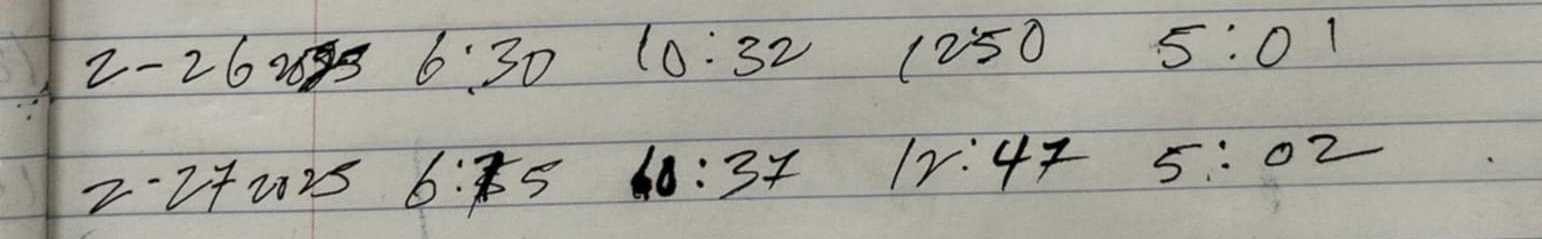 2-26 2025 6:30 10:32 12:50 5:01
2-27 2025 10:37 12:47 5:02